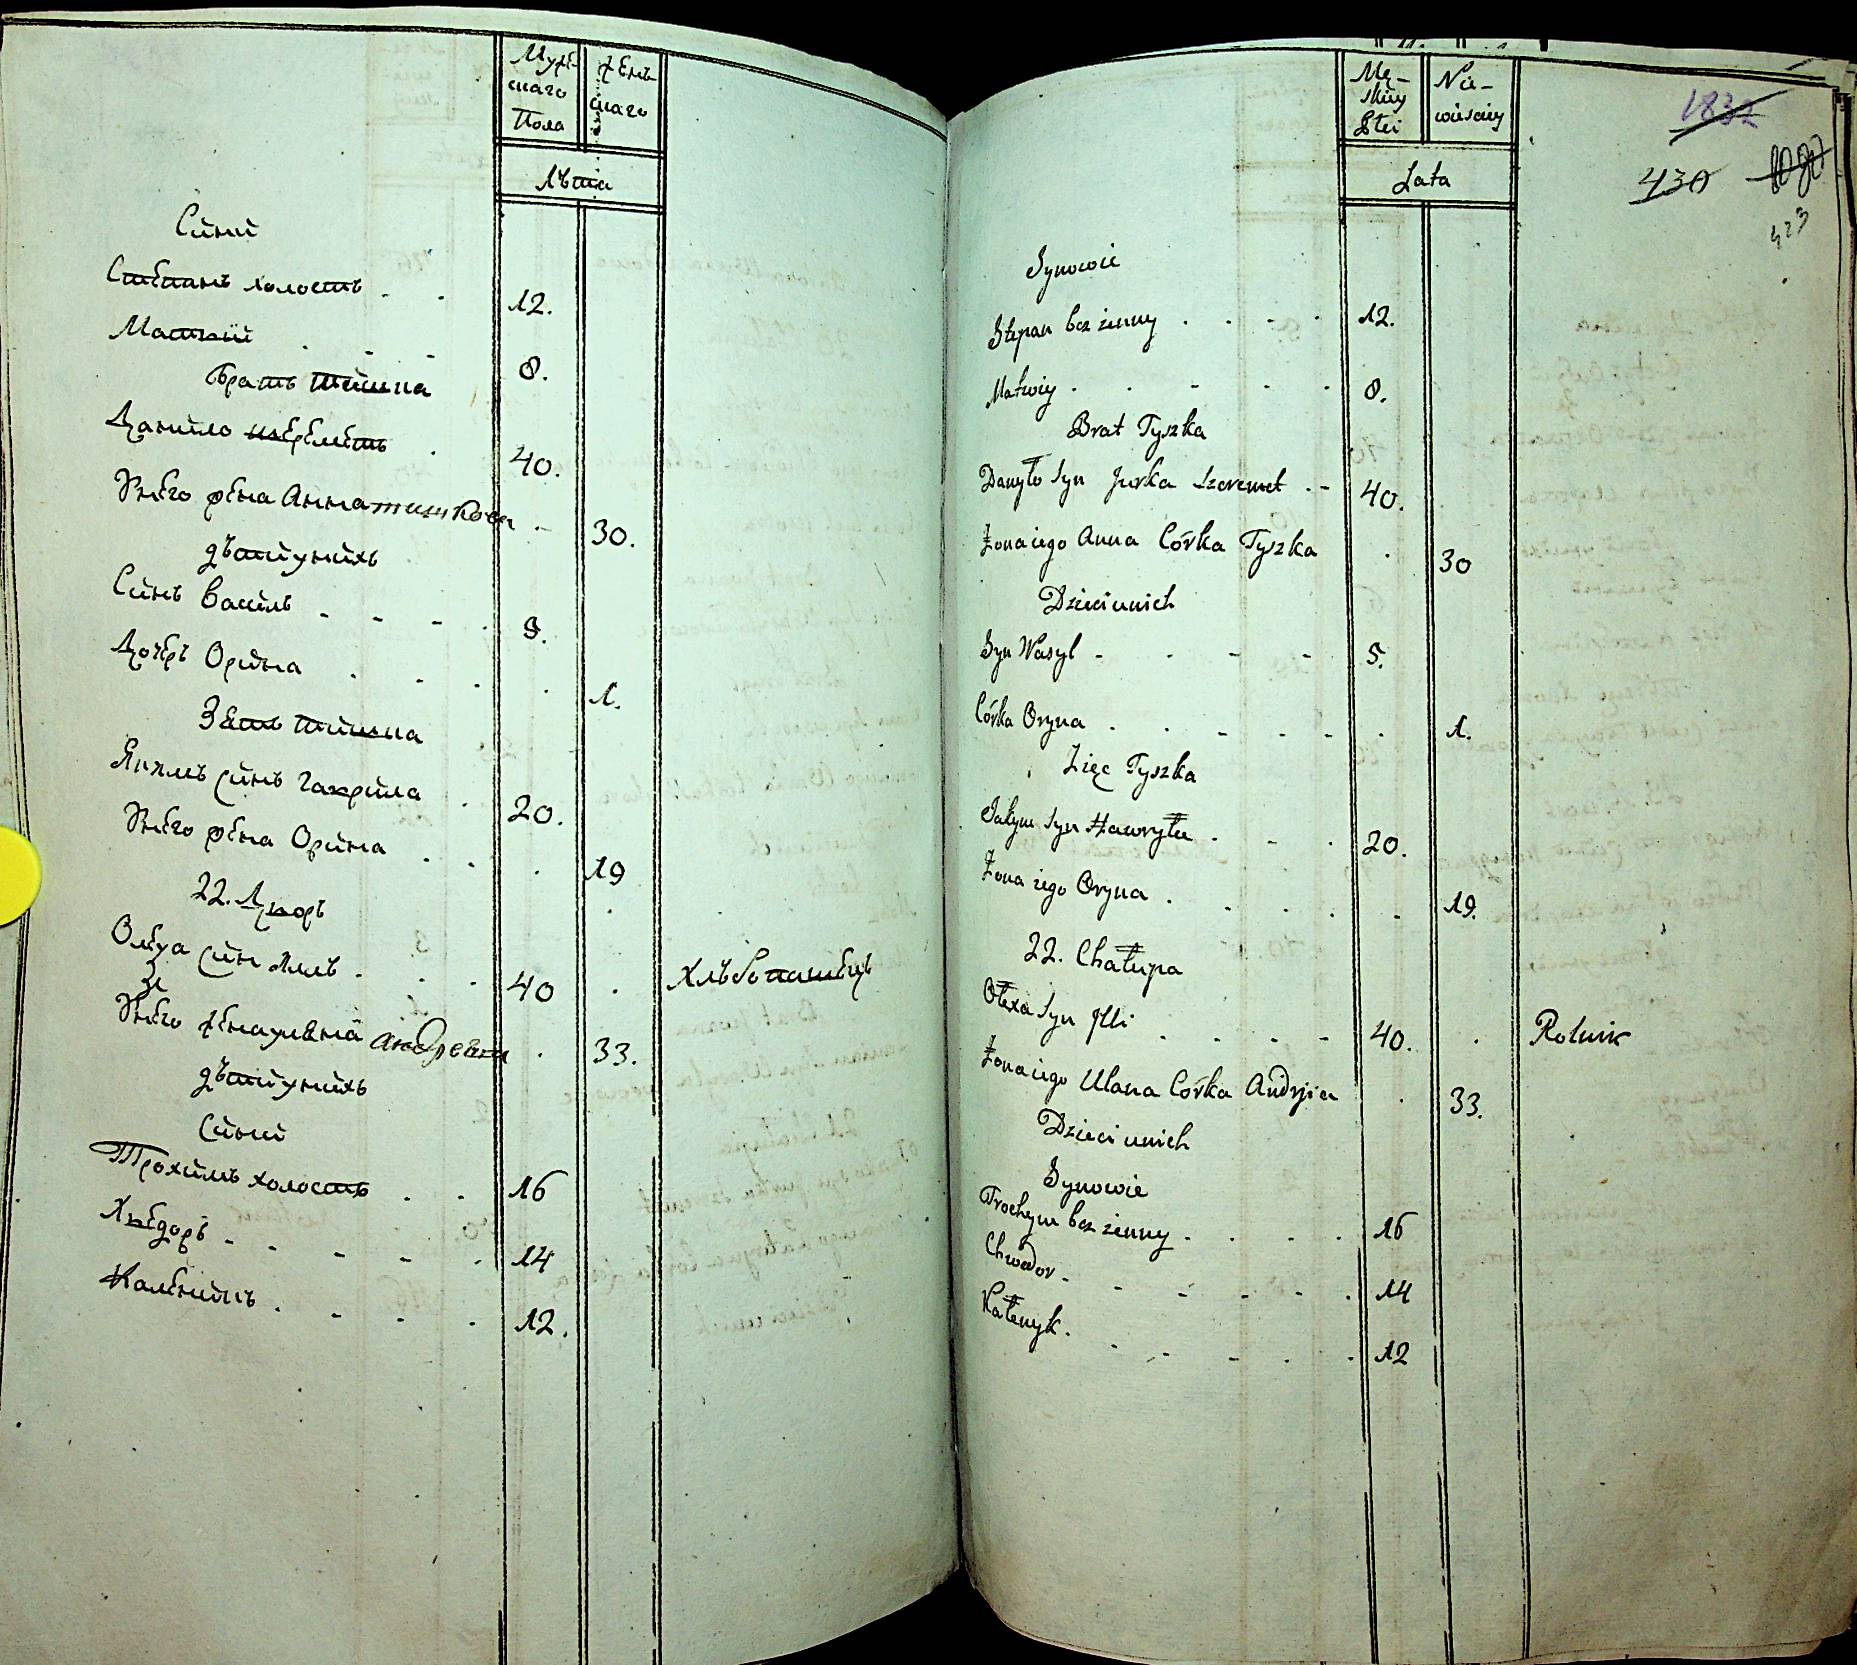 Муж-
скаго
Пола
жень-
скаго
Лѣта
Сини
Степанъ холостъ
12.
Матвій
8.
Братъ тишка
Данило шеремѣтъ
40.
Унѣго жена Анна тишкова
30.
дѣти у нихъ
Синъ Василь
9.
Дочерь Орина
1.
Зеть тишка
Якимъ синъ гаврила
20.
Унѣго жена Орина
19
22. Дворъ
Олекса син Илль
40
Хлѣбопашецъ
Унѣго жена уляна андреева
33.
дѣти у нихъ
Сини
Трохимъ холостъ
16
Хведоръ
14
Каленикъ
12.
Mę-
skiey
Płci
Nie-
wiesciey
Lata
1832
430
1080
423
Synowie
Stepan bez żenny
12.
Matwiy
8.
Brat Tyszka
Danyło Syn Jurka Szeremet
40.
Żona iego Anna Córka Tyszka
30
Dzieci u nich
Syn Wasyl
5.
Córka Oryna
1.
Zięc Tyszka
Jakym Syn Hawryła
20.
Żona iego Oryna
19.
22. Chałupa
Ołexa Syn Illi
40.
Rolnik
Żona iego Ulana Córka Andryia
33.
Dzieci u nich
Synowie
Trochym bez żenny
16
Chwedor
14
Kałenyk.
12